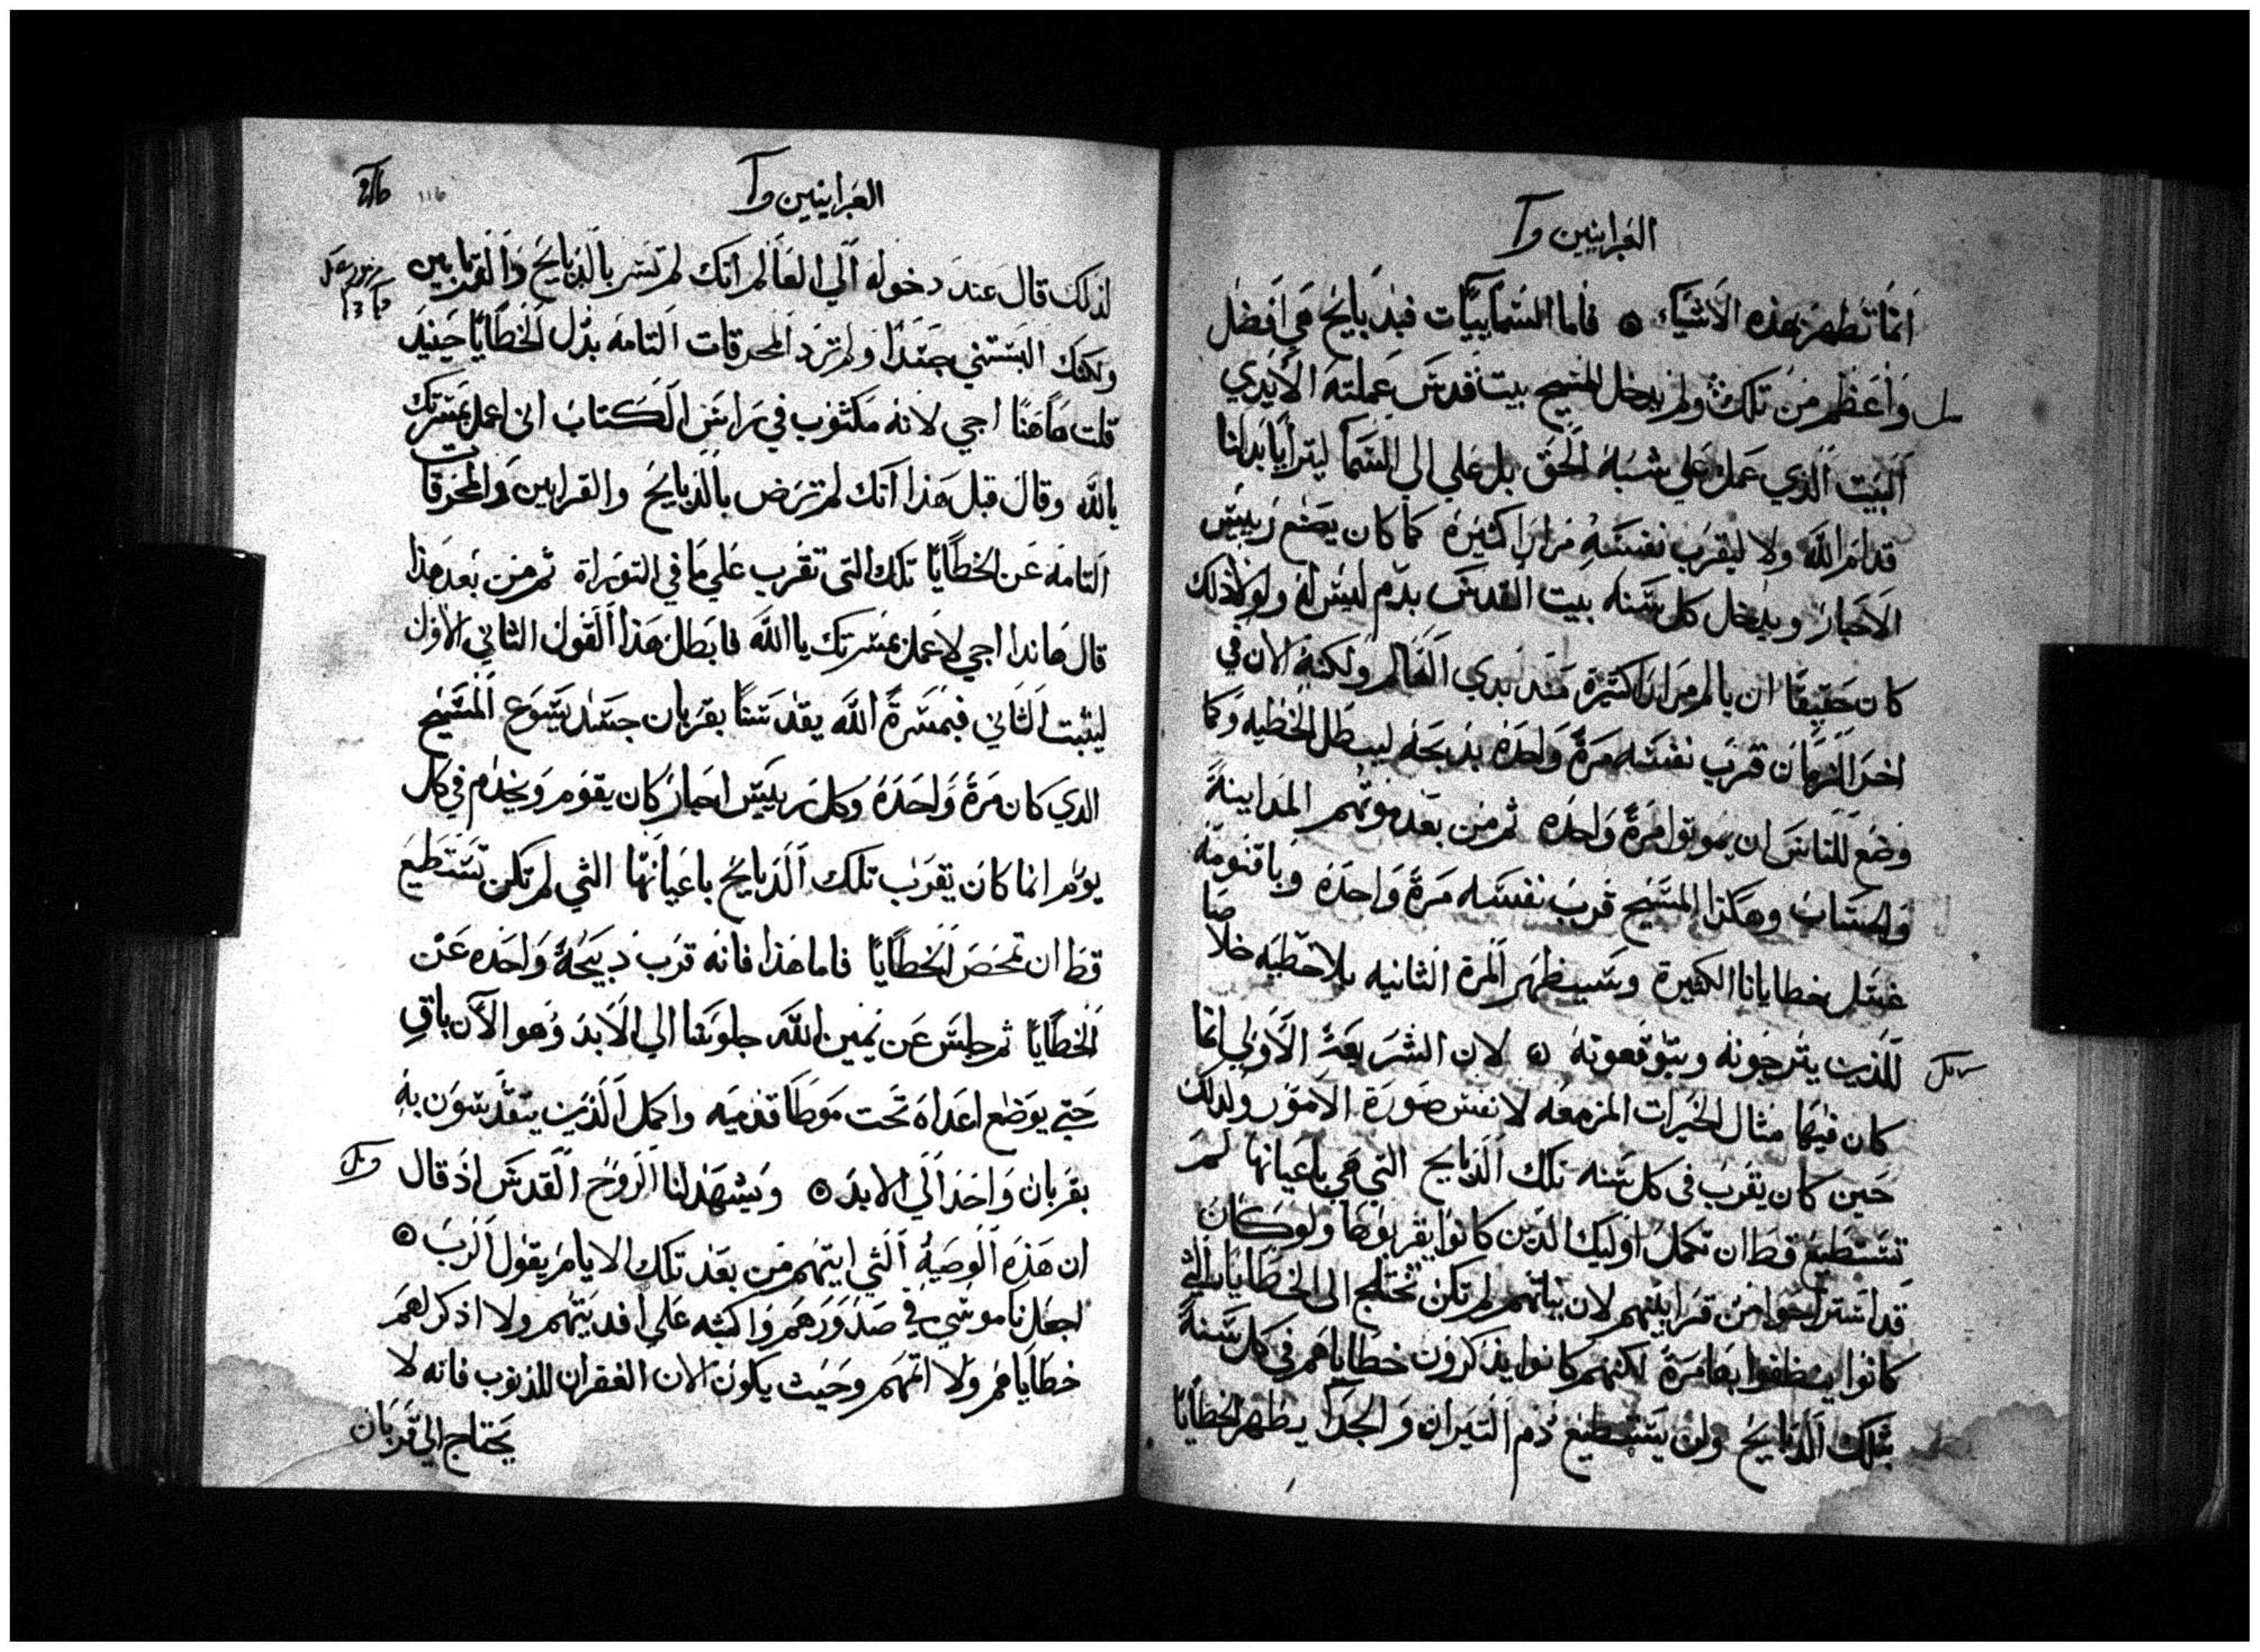 العبرانيين
انما تطهر بهذه الاشياء ۞ فاما السماييات فبدبايح هي افضل
واعظم من تلك ولم يدخل المسيح بيت قدس عملته الايدي
البيت الذي عمل علي شبه الحق بل علي الي السما ليترايا بدلنا
قدام الله ولا ليقرب نفسه مرارا كثيرة كما كان يصنع رييس
الاحبار ويدخل كل سنه بيت القدس بدم ليس له ولولا ذلك
كان حقيقا ان يالم مرارا كثيرة منذ بدي العالم ولكنه الان في
اخر الزمان قرب نفسه مرة واحدة بذبحه ليبطل الخطيه وكما
وضع للناس ان يموتوا مرة واحده ثم من بعد موتهم المداينة
والحساب وهكذا المسيح قرب نفسه مرة واحدة وباقنومه
غسل خطايانا الكثيرة وسيظهر المرة الثانيه بلا خطيه خلاصا
للذين يترجونه ويتوقعونه ۞ لان الشريعة الاولي انما
كان فيها مثال الخيرات المزمعه لا نفس صورة الامور ولذلك
حين كان يقرب في كل سنه تلك الذبايح التي هي باعيانها لم
تستطيع قط ان تكمل اوليك الذين كانوا يقربوها ولو كان
قد استراحوا من قرابينهم لان نياتهم لم تكن تحتاج الي الخطايا التي
كانوا يتظفوا بها مرة لكنهم كانوا يذكرون خطاياهم في كل سنة
بتلك الذبايح ولن يستطيع دم التيران والجدا يطهر الخطايا
العبرانيين
١١٦
لذلك قال عند دخوله الي العالم انك لم تسر بالذبايح والقرابين
ولكنك البستني جسدا ولم ترد المحرقات التامه بدل الخطايا حينيد
قلت هاهنا اجي لانه مكتوب في راس الكتاب اني اعمل بمسرتك
يالله وقال قبل هذا انك لم ترض بالذبايح والقرابين والمحرقات
التامه عن الخطايا تلك التي تقرب علي ما في التوراة ثم من بعد هذا
قال هاندا اجي لاعمل بمسرتك يا الله فابطل هذا القول الثاني الاول
ليثبت الثاني فبمسرة الله يقدسنا بقربان جسد يسوع المسيح
الدي كان مرة واحدة وكل رييس احبار كان يقوم ويخدم في كل
يوم انما كان يقرب تلك الذبايح باعيانها التي لم تكن تستطيع
قط ان تمحص الخطايا فاما هذا فانه قرب دبيحة واحده عن
الخطايا ثم جلس عن يمين الله جلوسا الي الابد وهو الان باق
حتي يوضع اعداه تحت موطا قدميه واكمل الذين يتقدسون به
بقربان واحد الي الابد ۞ ويشهد لنا الروح القدس اذ قال
ان هذه الوصية التي اتيتهم من بعد تلك الايام يقول الرب ۞
اجعل ناموسي في صدورهم واكتبه علي افديتهم ولا اذكر لهم
خطاياهم ولا اثمهم وحيث يكون الان الغفران للذنوب فانه لا
يحتاج الي قربان